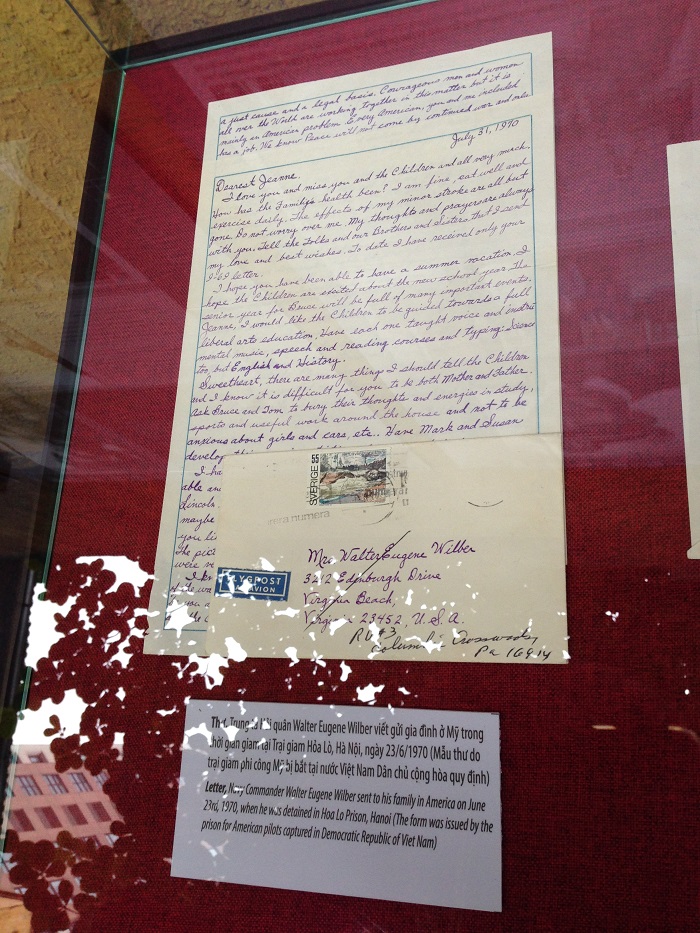 a just cause and a legal basis. Courageous men and women
all over the World are working together in this matter but it is
mainly an American problem. Every American, you and me included
has a job. We know Peace will not come by continued war and only
July 31, 1970
Dearest Jeanne,
I love you and miss you and the Children and all very much.
How has the Family's health been? I am fine, eat well and
exercise daily. The effects of my minor stroke are all but
gone. Do not worry over me. My thoughts and prayers are always
with you. Tell the Folks and our Brothers and Sisters that I send
my love and best wishes. To date I have received only your
letter.
I hope you have been able to have a summer vacation. I
hope the Children are excited about the new school year. The
senior year for Bruce will be full of many important events.
Jeanne, I would like the Children to be guided towards a full
liberal arts education. Have each one taught voice and instru
mental music, speech and reading courses and typing; Science
too, but English and History.
Sweetheart, there are many things I should tell the Children
and I know it is difficult for you to be both Mother and Father.
Ask Bruce and Tom to bury their thoughts and energies in study,
sports and useful work around the house and not to be
anxious about girls and cars, etc. Have Mark and Susan
develop
I ha
able an
Lincoln
maybe
you li
The pic
were
I k
SVERIGE 55
numera
Mrs Walter Eugene Wilber
3212 Edinburgh Drive
Virginia Beach,
Virginia 23452, U.S.A.
AVION
Columbia Crossroads
Pa 16914
Thư, Trung tá Hải quân Walter Eugene Wilber viết gửi gia đình ở Mỹ trong
thời gian giam tại Trại giam Hỏa Lò, Hà Nội, ngày 23/6/1970 (Mẫu thư do
trại giam phi công Mỹ bị bắt tại nước Việt Nam Dân chủ cộng hòa quy định)
Letter, Navy Commander Walter Eugene Wilber sent to his family in America on June
23rd, 1970, when he was detained in Hoa Lo Prison, Hanoi (The form was issued by the
prison for American pilots captured in Democratic Republic of Viet Nam)